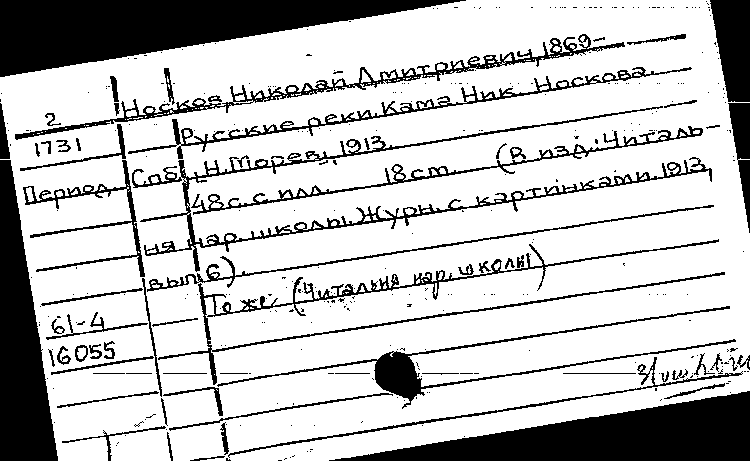 Носков, Николай Дмитриевич, 1869-
2
1731
Русские реки. Кама. Ник. Носкова.
Период. Спб., Н. Морев, 1913.
48 с. с илл. 18 см. (В изд.: Читаль-
ня нар. школы. Журн. с картинками. 1913,
вып. 6).
То же, (Читальня нар. школы)
61-4
16055